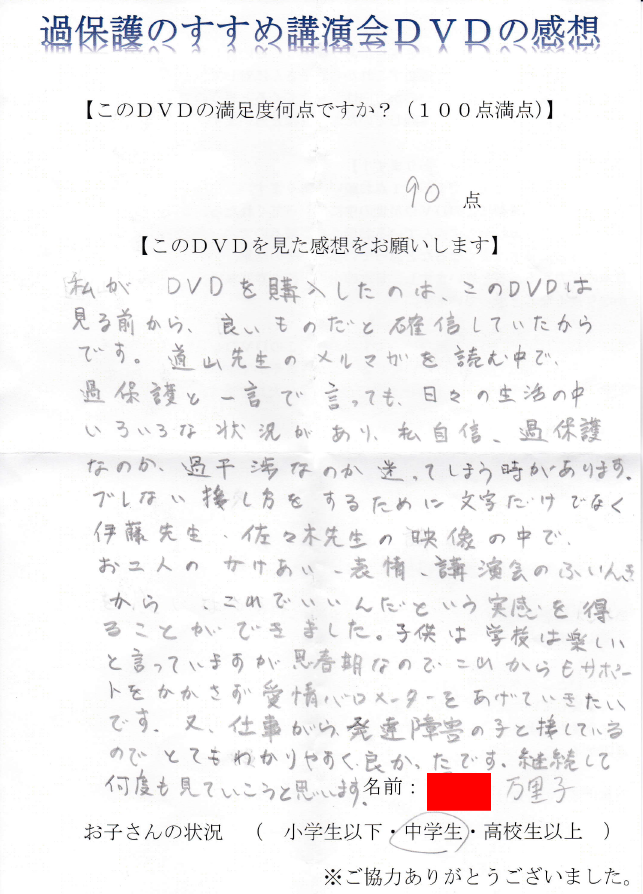 過保護のすすめ講演会DVDの感想
【このDVDの満足度何点ですか?（100点満点）】
90 点
【このDVDを見た感想をお願いします】
私が DVDを購入したのは、このDVDは
見る前から、良いものだと確信していたから
です。道山先生のメルマガを読む中で、
過保護と一言で言っても、日々の生活の中
いろいろな状況があり、私自信、過保護
なのか、過干渉なのか迷ってしまう時があります。
ブレない接し方をするために文字だけでなく
伊藤先生、佐々木先生の映像の中で、
お二人のかけあい、表情、講演会のふいんき
から、これでいいんだという実感を得
ることができました。子供は学校は楽しい
と言っていますが思春期なのでこれからもサポー
トをかかさず愛情バロメーターをあげていきたい
です。又、仕事がら、発達障害の子と接している
のでとてもわかりやすく良かったです。継続して
何度も見ていこうと思います。
名前： 万里子
お子さんの状況 （ 小学生以下・中学生・高校生以上 ）
※ご協力ありがとうございました。